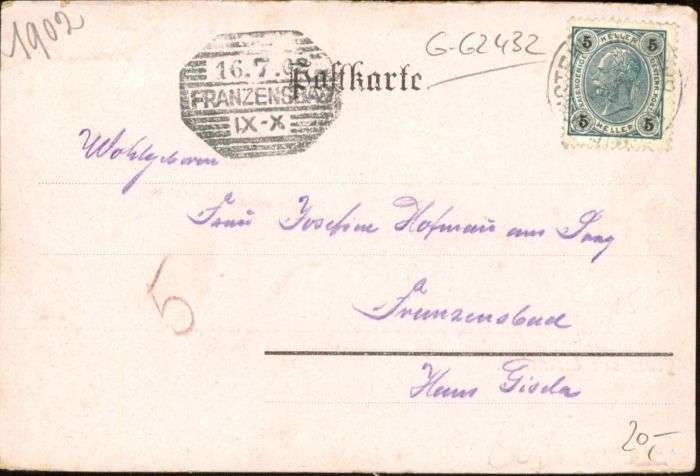 1902
G-G2432
16.7.02
Postkarte
FRANZENSBAD
IX-X
5 HELLER 5
5 HELLER 5
Wohlgeboren
Frau Josefine Hofman aus Prag
5
Franzensbad
Haus Gisela
20,-